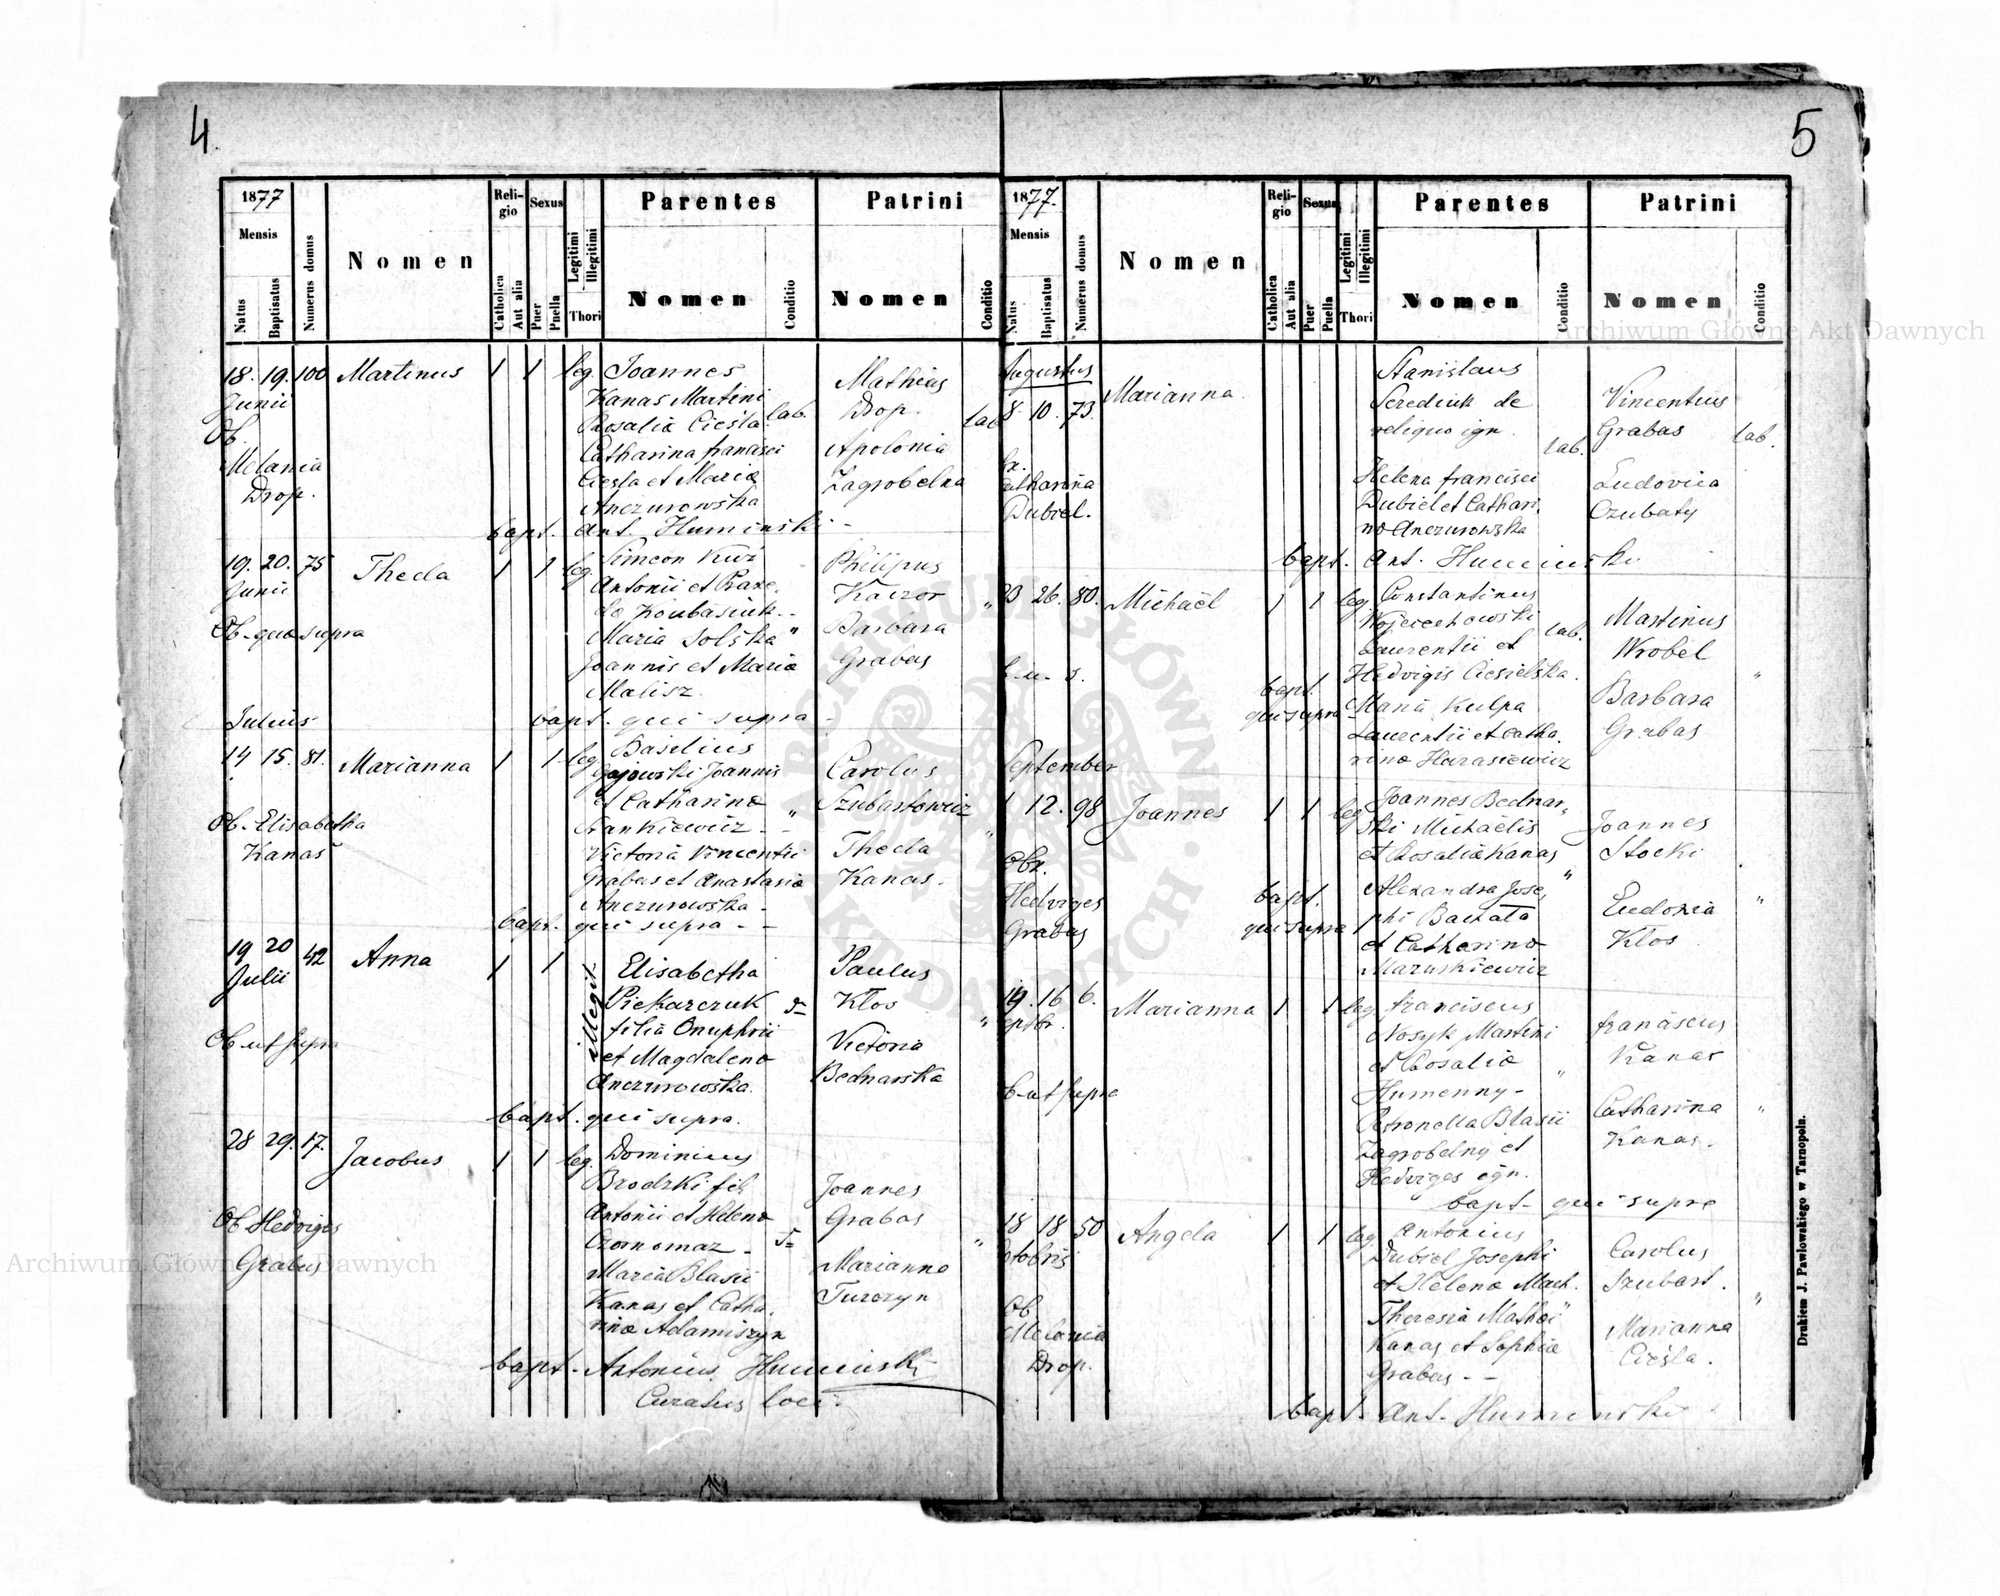 4.
1877
Mensis
Natus
Baptisatus
Numerus domus
Nomen
Religio
Catholica
Aut alia
Sexus
Puer
Puella
Legitimi
Illegitimi
Thori
Parentes
Nomen
Conditio
Patrini
Nomen
Conditio
18. 19. 100 Martinus 1 1 leg. Joannes
Junii
Kanas Martini
Rosalia Ciesla lab.
Catharina francisci
Ciesla et Maria
Anczurowska
Mathias
Drop. lab.
Apolonia
Zagrobelna
Ob.
Melania
Drop.
bapt. Ant. Huminski -
19. 20. 75 Thecla 1 1 leg. Simeon
Junii
Antonii et
Maria Solska "
Joannis et Maria
Malisz.
Philipus
Kaczor "
Barbara
Grabas
Ob. quae supra
bapt. qui supra -
Julius
14 15. 81. Marianna 1 1 leg. Basilius
Gajowski Joannis
et Catharina "
Stankiewicz - -
Victoria Vincentii
Grabas et Anastasia
Anczurowska -
Carolus
Szubartowicz
Thecla
Kanas.
Ob. Elisabetha
Kanas
bapt. qui supra - -
19 20 42 Anna 1 1 illegit.
Julii
Elisabetha
Piekarczuk
filia Onuphrii
et Magdalena
Anczurowska.
Paulus
Kłos "
Victoria
Bednarska
Ob. ut supra
bapt. qui supra.
28 29. 17. Jacobus 1 1 leg. Dominicus
Brodzki fil.
Antonii et Helena
Czornomaz -
Maria Blasii
Kanas et Catha-
rina Adamiszyn
Joannes
Grabas "
Marianna
Turczyn
Ob. Hedviges
Grabas
bapt. Antonius Huminski
Curatus loci.
5
1877.
Mensis
Natus
Baptisatus
Numerus domus
Nomen
Religio
Catholica
Aut alia
Sexus
Puer
Puella
Legitimi
Illegitimi
Thori
Parentes
Nomen
Conditio
Patrini
Nomen
Conditio
Augustus
8. 10. 73. Marianna.
Stanislaus
Serediuk de
reliquo ign.
lab.
Helena francisci
Dubiel et Cathari
na Anczurowska
Vincentius
Grabas lab.
Ludovica
Czubaty
Catharina
Dubiel.
bapt. Ant. Huminski
23 26. 80. Michaël 1 1 leg. Constantinus
Wojciechowski
Laurentii et lab.
Hedvigis Ciesielska.
Maria Kulpa
Laurentii et Catha.
rina Harasiewicz
Martinus
Wrobel "
Barbara
Grabas
bapt.
qui supra
September
12. 98 Joannes 1 1 leg. Joannes Bednar-
ski Michaëlis
et Rosalia Kanas
Alexandra Jose,
phi Baczała
et Catharina
Maruskiewicz
Joannes
Stocki
Eudoxia "
Kłos
Obs.
Hedviges
Grabas
bapt.
qui supra
14. 16 6. Marianna 1 1 leg. franciscus
Nosyk Martini
et Rosalia "
Humenny -
Petronella Blasii
Zagrobelny et
Hedviges ign.
franciscus
Kanas
Catharina "
Kanas.
bapt. qui supra
18 18 50 Angela 1 1 leg. Antonius
Octobris
Dubiel Josephi
et Helena Mach.
Theresia Mathai "
Kanas et Sophia
Grabas - -
Carolus
Szubart. "
Marianna
Cieśla.
Ob.
Melania
Drop.
bapt. Ant. Huminski
Drukiem J. Pawłowskiego w Tarnopolu.
Archiwum Główne Akt Dawnych
Archiwum Główne Akt Dawnych
ARCHIWUM GŁÓWNE AKT DAWNYCH